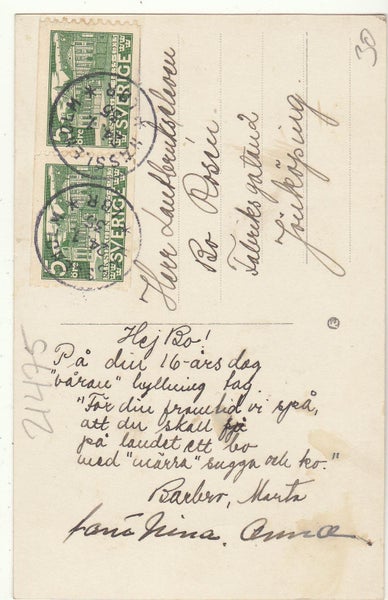 30
SVERIGE
5 ÖRE
SVERIGE
5 ÖRE
Herr Lantbrukseleven
Bo Rosén.
Fabriksgatan 2
Jönköping.
21475
Hej Bo!
På din 16-års dag
"våran" hyllning tag.
"För din framtid vi spå,
att du skall få
på landet ett bo
med "märra" sugga och ko."
Barbro, Marta
Nina. Anna